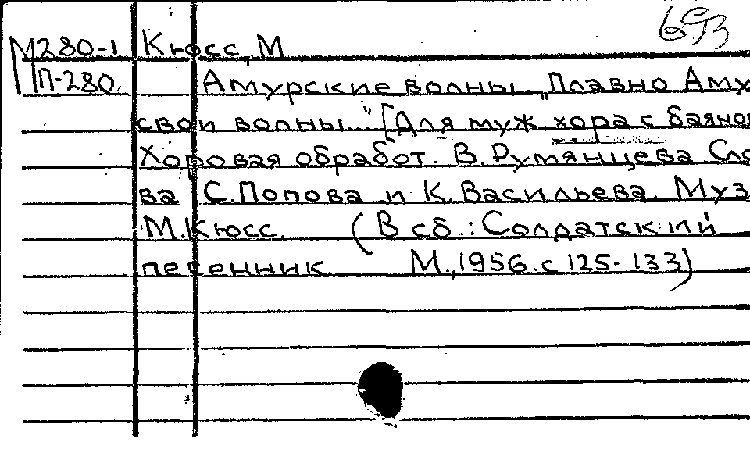 693
М280-1 Кюсс, М
П-280. Амурские волны „Плавно Аму
свои волны..." [Для муж хора с баяно
Хоровая обработ. В. Румянцева Сло
ва С. Попова и К. Васильева. Муз
М. Кюсс. (В сб.: Солдатский
песенник М., 1956. с 125-133)